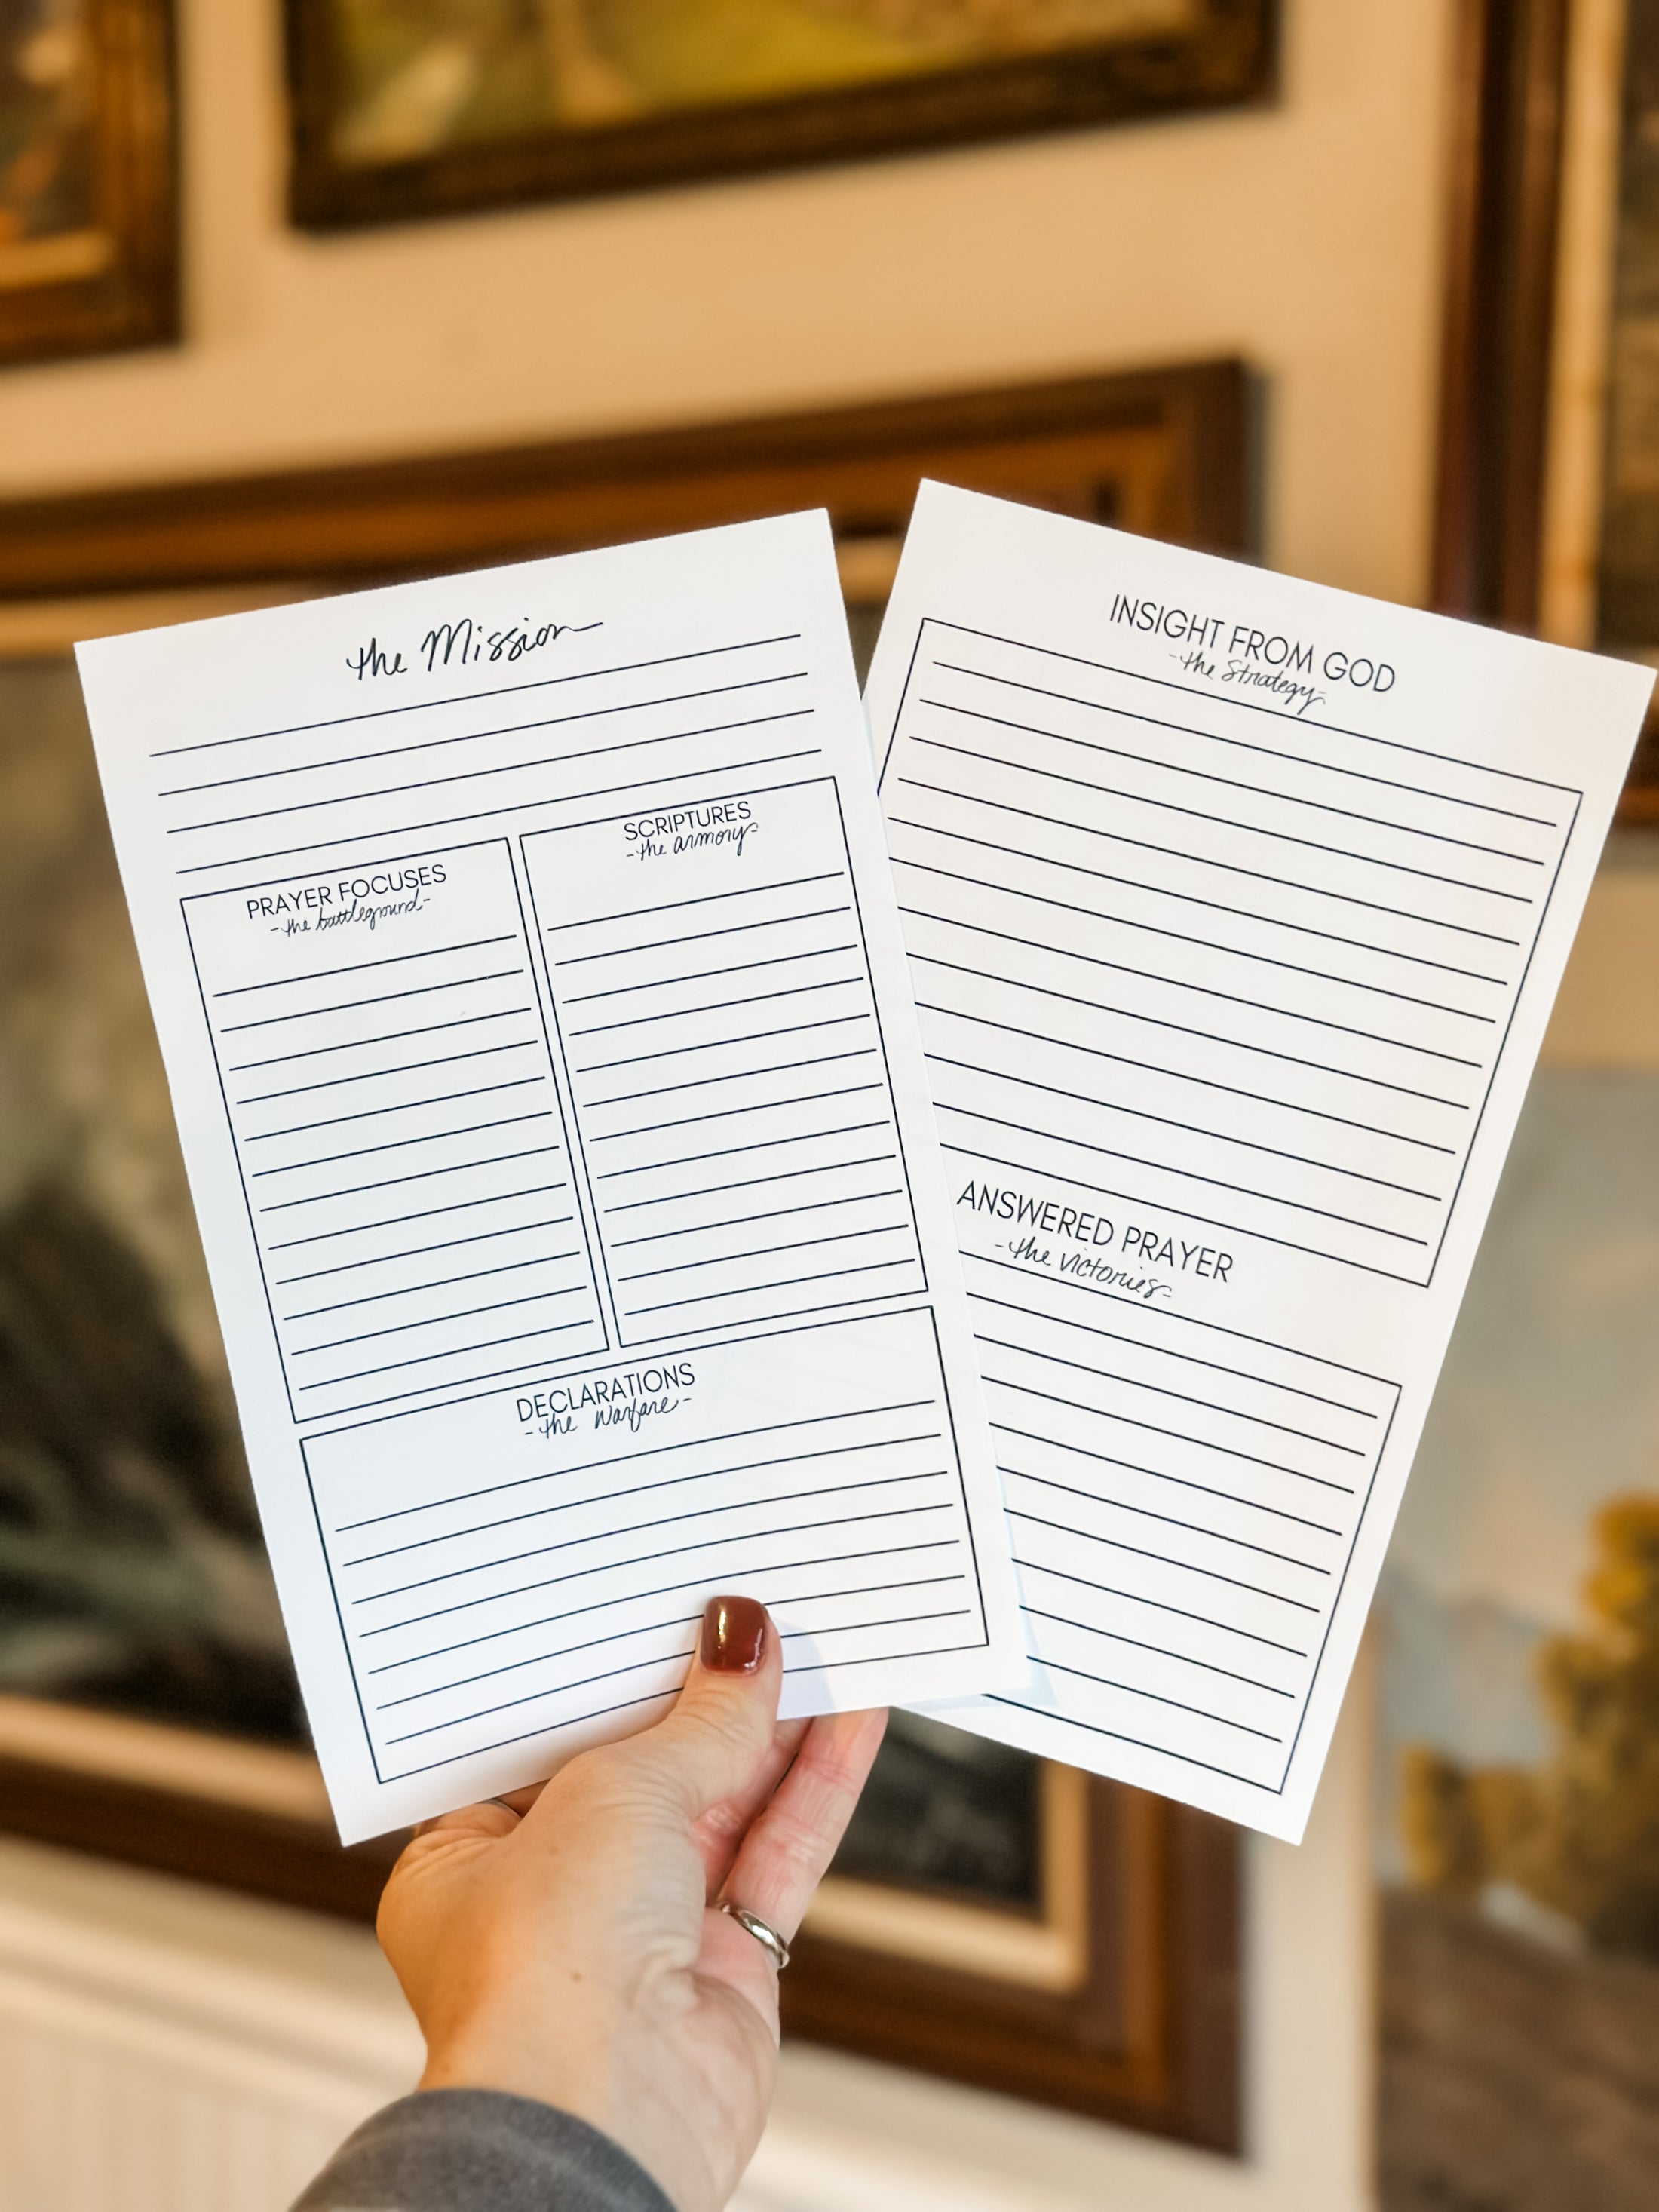 the Mission
PRAYER FOCUSES
-the battleground-
SCRIPTURES
-the armory-
DECLARATIONS
-the Warfare-
INSIGHT FROM GOD
-the Strategy-
ANSWERED PRAYER
-the victories-